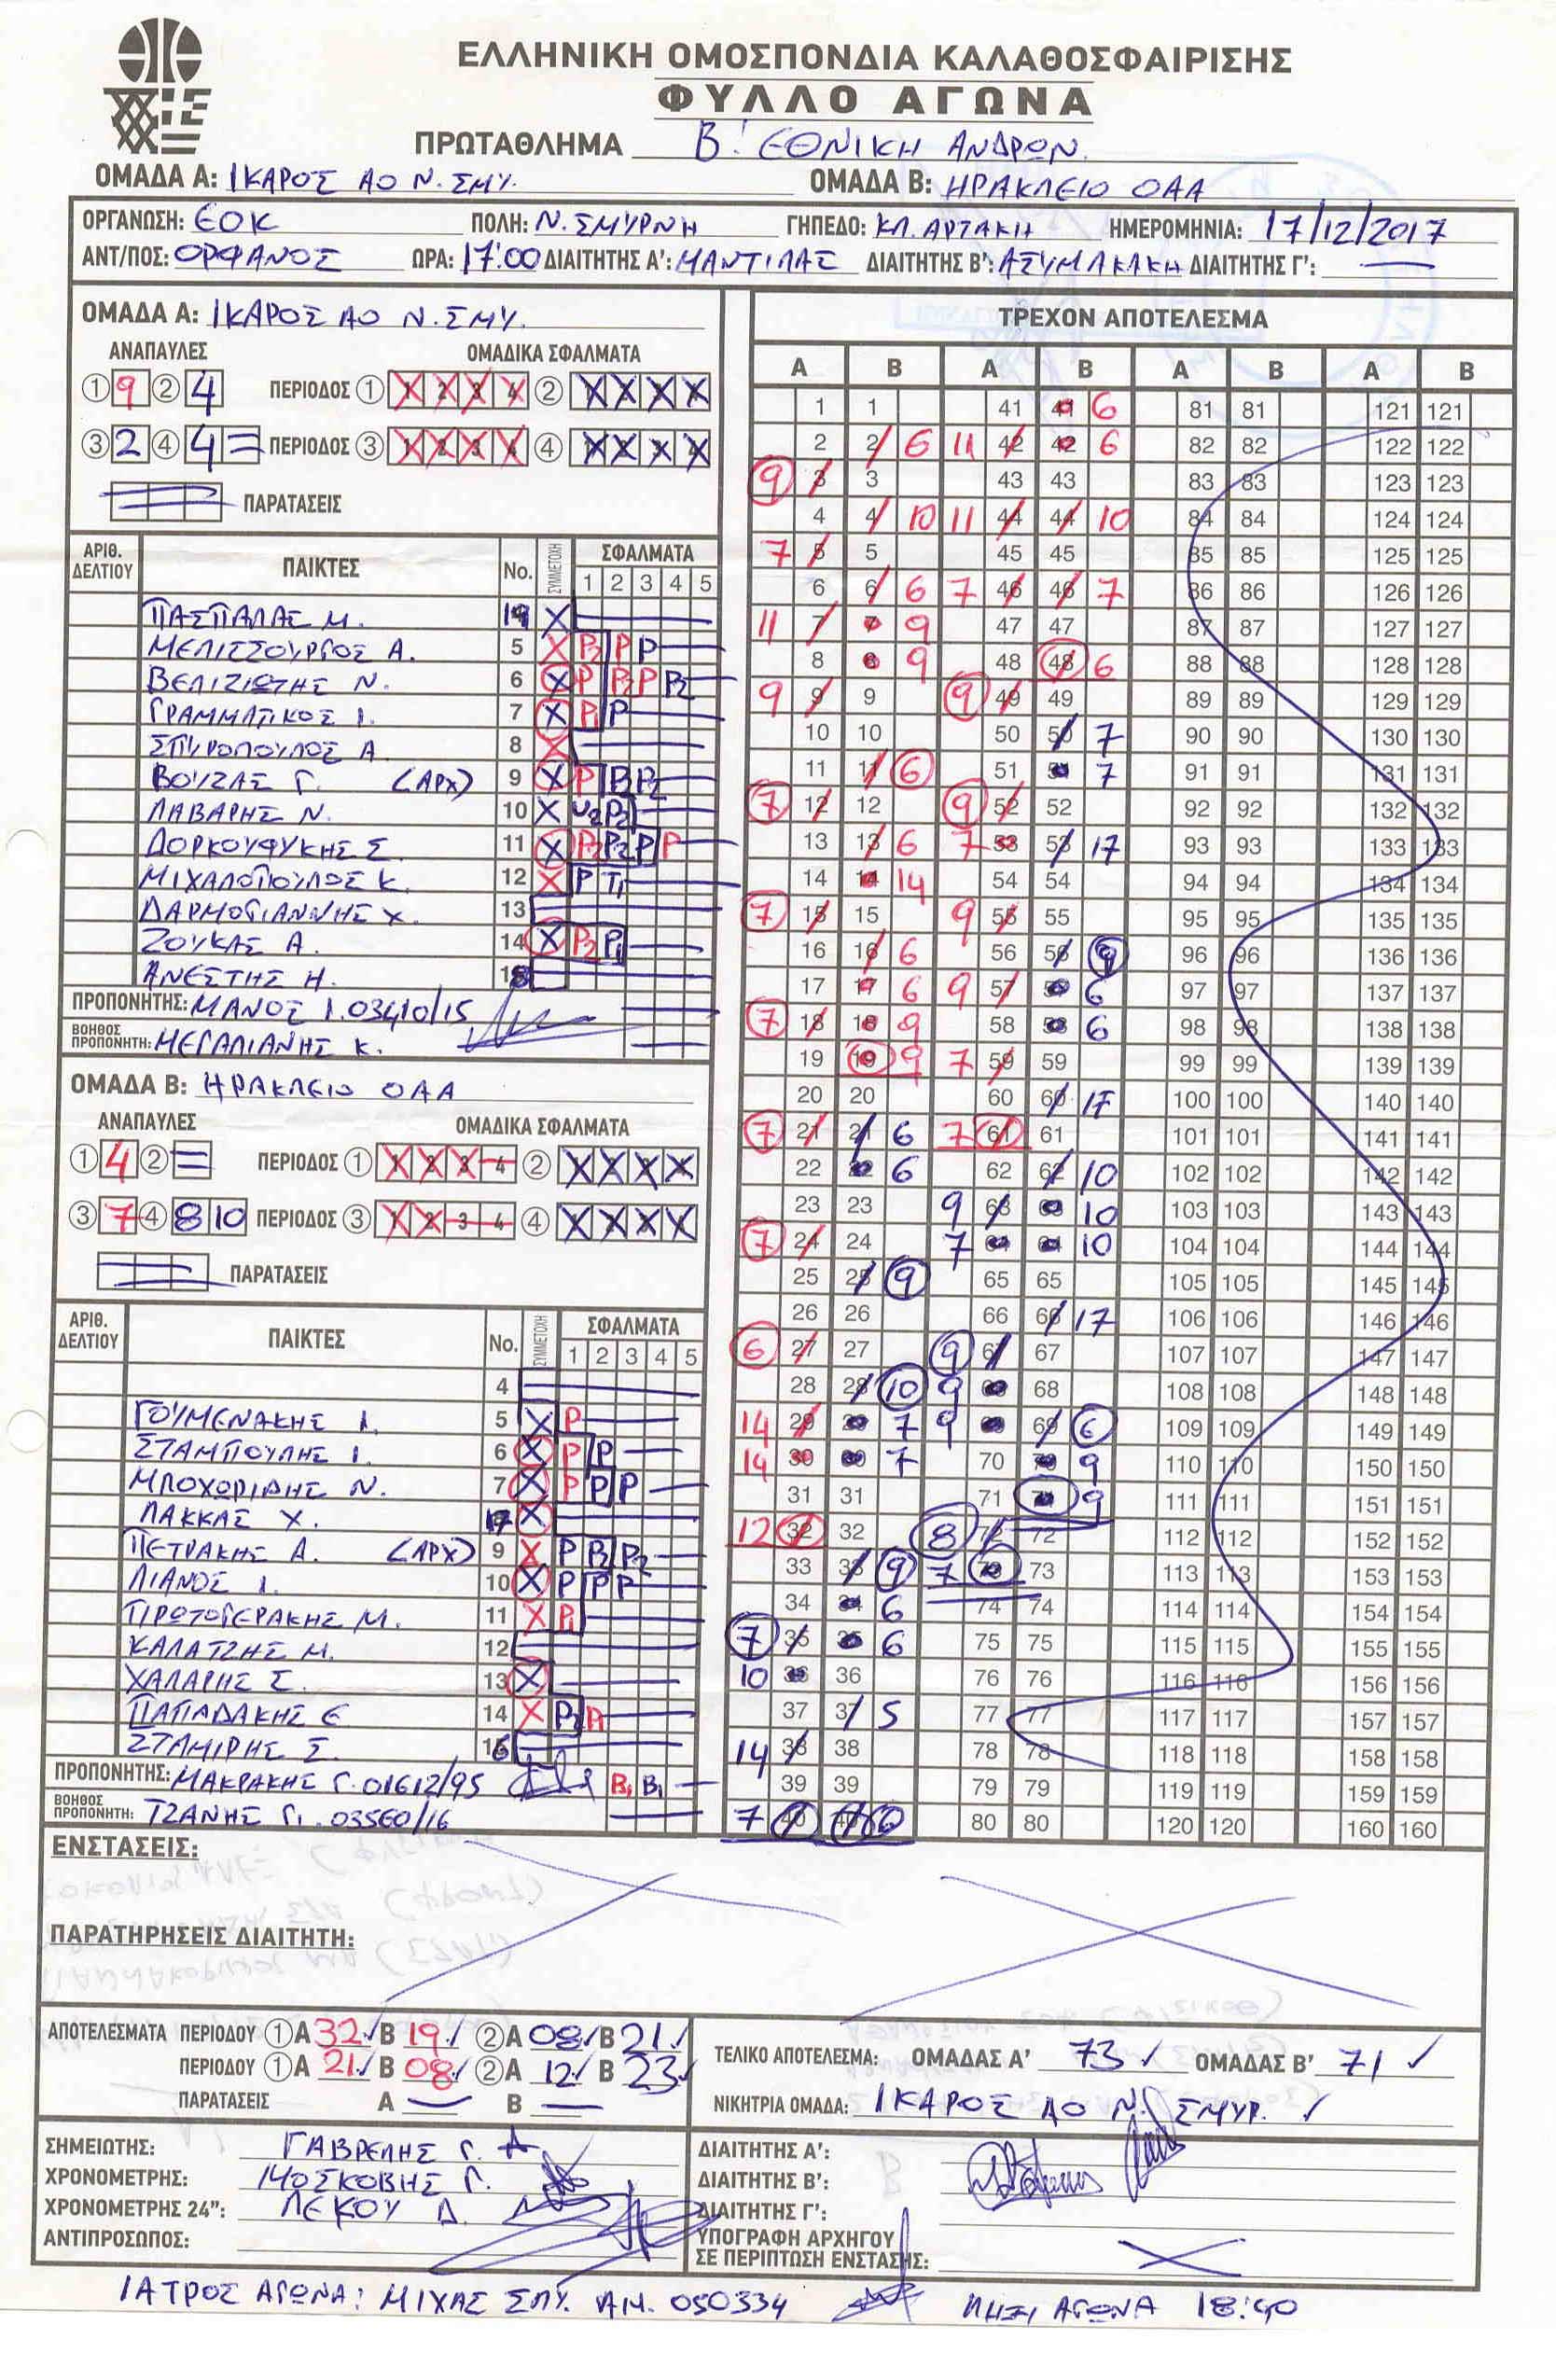 ΕΛΛΗΝΙΚΗ ΟΜΟΣΠΟΝΔΙΑ ΚΑΛΑΘΟΣΦΑΙΡΙΣΗΣ
ΦΥΛΛΟ ΑΓΩΝΑ
ΠΡΩΤΑΘΛΗΜΑ Β' ΕΘΝΙΚΗ ΑΝΔΡΩΝ
ΟΜΑΔΑ Α: ΙΚΑΡΟΣ ΑΟ Ν. ΣΜΥ. ΟΜΑΔΑ Β: ΗΡΑΚΛΕΙΟ ΟΑΑ
ΟΡΓΑΝΩΣΗ: ΕΟΚ ΠΟΛΗ: Ν. ΣΜΥΡΝΗ ΓΗΠΕΔΟ: ΚΛ. ΑΡΤΑΚΗ ΗΜΕΡΟΜΗΝΙΑ: 17/12/2017
ΑΝΤ/ΠΟΣ: ΟΡΦΑΝΟΣ ΩΡΑ: 17:00 ΔΙΑΙΤΗΤΗΣ Α': ΜΑΝΤΙΛΑΣ ΔΙΑΙΤΗΤΗΣ Β': ΑΣΥΜΑΚΑΚΗ ΔΙΑΙΤΗΤΗΣ Γ':
ΟΜΑΔΑ Α: ΙΚΑΡΟΣ ΑΟ Ν. ΣΜΥ.
ΑΝΑΠΑΥΛΕΣ ΟΜΑΔΙΚΑ ΣΦΑΛΜΑΤΑ
① 9 ② 4 ΠΕΡΙΟΔΟΣ ① 1 2 3 4 ② 1 2 3 4
③ 2 ④ 4 = ΠΕΡΙΟΔΟΣ ③ 1 2 3 4 ④ 1 2 3 4
ΠΑΡΑΤΑΣΕΙΣ
ΑΡΙΘ. ΔΕΛΤΙΟΥ ΠΑΙΚΤΕΣ No. ΣΥΜΜΕΤΟΧΗ ΣΦΑΛΜΑΤΑ 1 2 3 4 5
ΠΑΣΠΑΛΑΣ Μ. 19 X
ΜΕΛΙΣΣΟΥΡΓΟΣ Α. 5 X P2 P P
ΒΕΛΙΖΙΩΤΗΣ Ν. 6 X P P2 P P2
ΓΡΑΜΜΑΤΙΚΟΣ Ι. 7 X P1 P
ΣΠΥΡΟΠΟΥΛΟΣ Α 8 X
ΒΟΥΖΑΣ Γ. (ΑΡΧ) 9 X P B P2
ΛΑΒΑΡΗΣ Ν. 10 X U2 P2
ΔΟΡΚΟΦΥΚΗΣ Σ. 11 X P2 P2 P P
ΜΙΧΑΛΟΠΟΥΛΟΣ Κ. 12 X P T1
ΔΑΡΜΟΓΙΑΝΝΗΣ Χ. 13
ΖΟΥΚΑΣ Α. 14 X P2 P1
ΑΝΕΣΤΗΣ Η. 18
ΠΡΟΠΟΝΗΤΗΣ: ΜΑΝΟΣ Ι. 03410/15
ΒΟΗΘΟΣ ΠΡΟΠΟΝΗΤΗ: ΜΕΓΑΛΙΑΝΗΣ Κ.
ΟΜΑΔΑ Β: ΗΡΑΚΛΕΙΟ ΟΑΑ
ΑΝΑΠΑΥΛΕΣ ΟΜΑΔΙΚΑ ΣΦΑΛΜΑΤΑ
① 4 ② = ΠΕΡΙΟΔΟΣ ① 1 2 3 4 ② 1 2 3 4
③ 7 ④ 8 10 ΠΕΡΙΟΔΟΣ ③ 1 2 3 4 ④ 1 2 3 4
ΠΑΡΑΤΑΣΕΙΣ
ΑΡΙΘ. ΔΕΛΤΙΟΥ ΠΑΙΚΤΕΣ No. ΣΥΜΜΕΤΟΧΗ ΣΦΑΛΜΑΤΑ 1 2 3 4 5
4
ΓΟΥΜΕΝΑΚΗΣ Ι. 5 X P
ΣΤΑΜΠΟΥΛΗΣ Ι. 6 X P P
ΜΠΟΧΩΡΙΔΗΣ Ν. 7 X P P P
ΛΑΚΚΑΣ Χ. 17 X
ΠΕΤΡΑΚΗΣ Α. (ΑΡΧ) 9 X P P2 P2
ΛΙΑΝΟΣ Ι. 10 X P P P
ΠΡΩΤΟΓΕΡΑΚΗΣ Μ. 11 X P1
ΚΑΛΑΤΖΗΣ Μ. 12
ΧΑΛΑΡΗΣ Σ. 13 X
ΠΑΠΑΔΑΚΗΣ Ε 14 X P2 P1
ΣΤΑΜΙΡΗΣ Σ. 16
ΠΡΟΠΟΝΗΤΗΣ: ΜΑΚΡΑΚΗΣ Γ. 01612/95 B1 B1
ΒΟΗΘΟΣ ΠΡΟΠΟΝΗΤΗ: ΤΖΑΝΗΣ Γ. 03560/16
ΤΡΕΧΟΝ ΑΠΟΤΕΛΕΣΜΑ
Α Β Α Β Α Β Α Β
1 1 41 41 6 81 81 121 121
2 2 6 11 42 42 6 82 82 122 122
9 3 3 43 43 83 83 123 123
4 4 10 11 44 44 10 84 84 124 124
7 5 5 45 45 85 85 125 125
6 6 6 7 46 46 7 86 86 126 126
11 7 7 9 47 47 87 87 127 127
8 8 9 48 48 6 88 88 128 128
9 9 9 9 49 49 89 89 129 129
10 10 50 50 7 90 90 130 130
11 11 6 51 51 7 91 91 131 131
7 12 12 9 52 52 92 92 132 132
13 13 6 7 53 53 17 93 93 133 133
14 14 14 54 54 94 94 134 134
7 15 15 9 55 55 95 95 135 135
16 16 6 56 56 9 96 96 136 136
17 17 6 9 57 57 6 97 97 137 137
7 18 18 9 58 58 6 98 98 138 138
19 19 9 7 59 59 99 99 139 139
20 20 60 60 17 100 100 140 140
7 21 21 6 7 61 61 101 101 141 141
22 22 6 62 62 10 102 102 142 142
23 23 9 63 63 10 103 103 143 143
7 24 24 7 64 64 10 104 104 144 144
25 25 9 65 65 105 105 145 145
26 26 66 66 17 106 106 146 146
6 27 27 9 67 67 107 107 147 147
28 28 10 9 68 68 108 108 148 148
14 29 29 7 9 69 69 6 109 109 149 149
14 30 30 7 70 70 9 110 110 150 150
31 31 71 71 9 111 111 151 151
12 32 32 8 72 72 112 112 152 152
33 33 9 7 73 73 113 113 153 153
34 34 6 74 74 114 114 154 154
7 35 35 6 75 75 115 115 155 155
10 36 36 76 76 116 116 156 156
37 37 5 77 77 117 117 157 157
14 38 38 78 78 118 118 158 158
39 39 79 79 119 119 159 159
7 40 40 6 80 80 120 120 160 160
ΕΝΣΤΑΣΕΙΣ:
ΠΑΡΑΤΗΡΗΣΕΙΣ ΔΙΑΙΤΗΤΗ:
ΑΠΟΤΕΛΕΣΜΑΤΑ ΠΕΡΙΟΔΟΥ ① Α 32 Β 19 ② Α 08 Β 21
ΠΕΡΙΟΔΟΥ ① Α 21 Β 08 ② Α 12 Β 23
ΠΑΡΑΤΑΣΕΙΣ Α — Β —
ΤΕΛΙΚΟ ΑΠΟΤΕΛΕΣΜΑ: ΟΜΑΔΑΣ Α' 73 ΟΜΑΔΑΣ Β' 71
ΝΙΚΗΤΡΙΑ ΟΜΑΔΑ: ΙΚΑΡΟΣ ΑΟ Ν. ΣΜΥΡ.
ΣΗΜΕΙΩΤΗΣ: ΓΑΒΡΕΛΗΣ Γ.
ΧΡΟΝΟΜΕΤΡΗΣ: ΜΟΣΚΟΒΗΣ Γ.
ΧΡΟΝΟΜΕΤΡΗΣ 24": ΛΕΚΟΥ Δ.
ΑΝΤΙΠΡΟΣΩΠΟΣ:
ΔΙΑΙΤΗΤΗΣ Α':
ΔΙΑΙΤΗΤΗΣ Β':
ΔΙΑΙΤΗΤΗΣ Γ':
ΥΠΟΓΡΑΦΗ ΑΡΧΗΓΟΥ
ΣΕ ΠΕΡΙΠΤΩΣΗ ΕΝΣΤΑΣΗΣ:
ΙΑΤΡΟΣ ΑΓΩΝΑ: ΜΙΧΑΣ ΣΠΥ. ΑΜ. 050334 ΛΗΞΗ ΑΓΩΝΑ 18:40